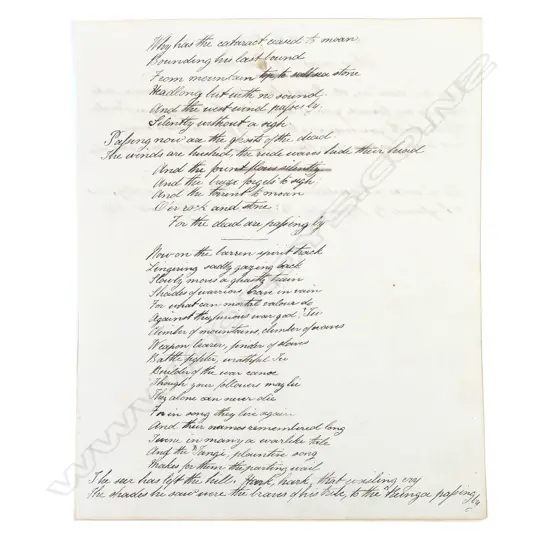 Why has the cataract ceased to moan
Bounding his last bound
From mountain top to sullen stone
Headlong but with no sound.
And the west wind passes by
Silently without a sigh
Passing now are the ghosts of the dead
The winds are hushed, the rude waves hide their head
And the fount flows silently
And the breeze forgets to sigh
And the torrent to moan
O'er rock and stone.
For the dead are passing by
Now on the barren spirit track
Lingering sadly gazing back
Slowly moves a ghastly train
Shades of warriors, brave in vain
For what can mortal valour do
Against the furious war god Tu
Climber of mountains, climber of waves
Weapon bearer, finder of slaves
Battle fighter, wrathful Tu
Builder of the war canoe
Though your followers may lie
They alone can never die
For in song they live again
And their names remembered long
Twine in many a warlike tale
And the "Tangi" plaintive song
Makes for them the parting wail
The seer has left the hill. Hark, hark, that wailing cry
The shades he saw were the braves of his tribe, to the Reinga passing by
WWW. .CO.NZ